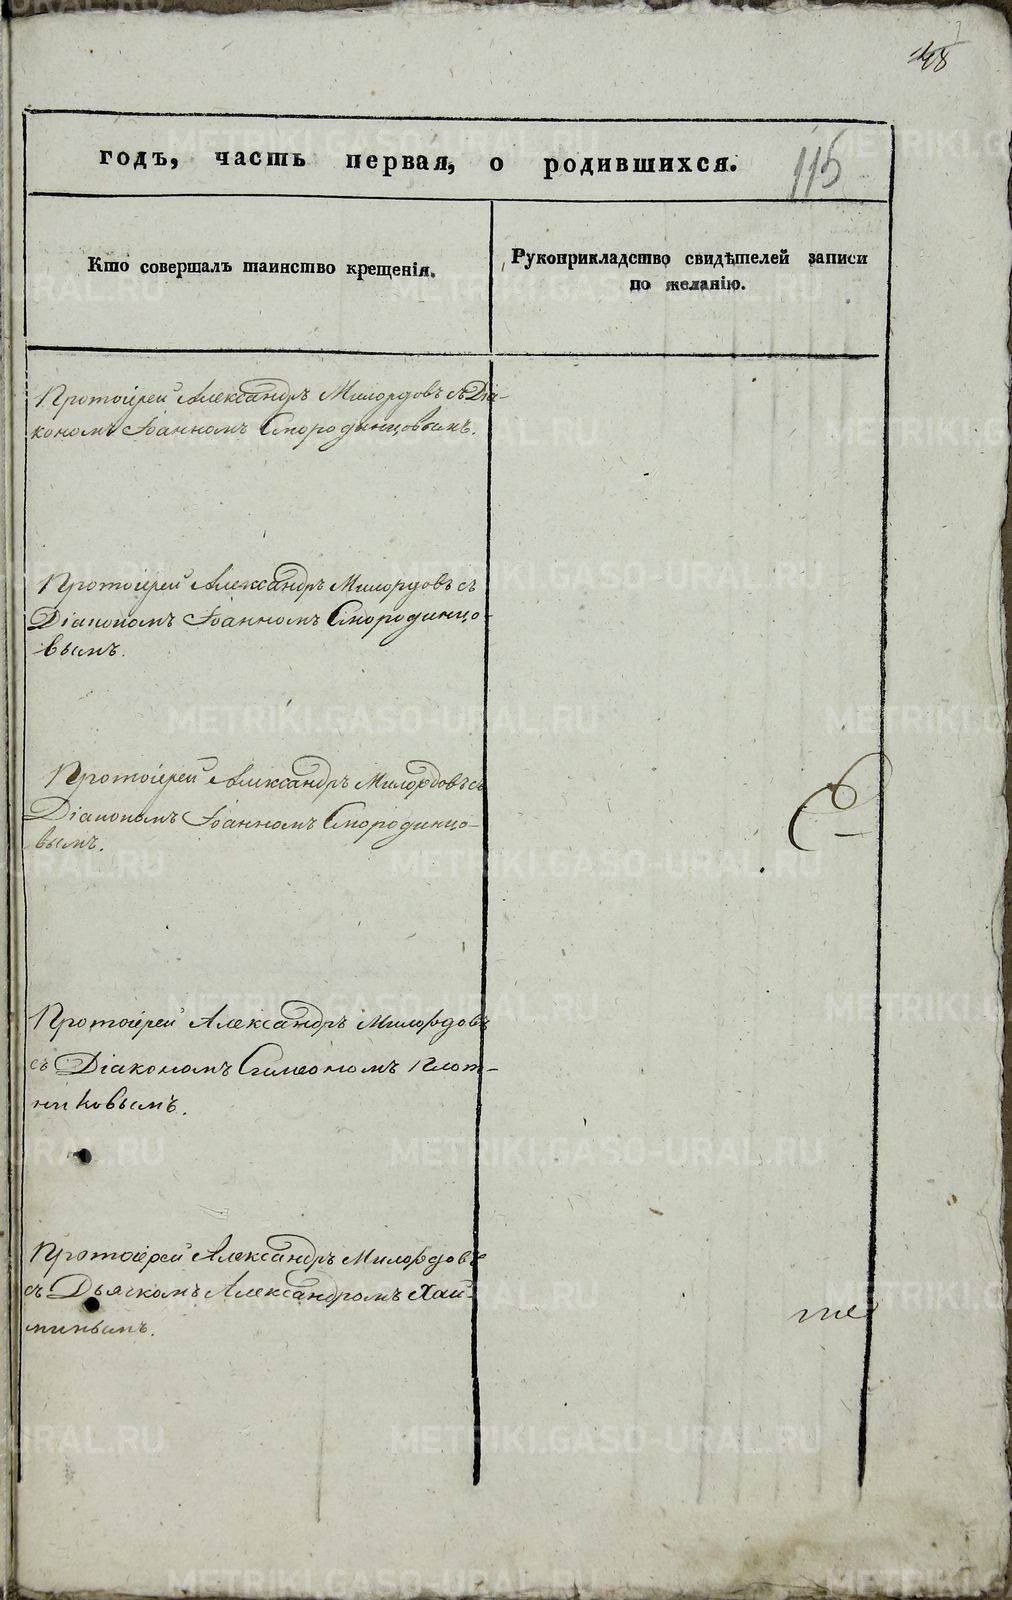 48
годъ, часть первая, о родившихся.
115
Кто совершалъ таинство крещенія.
Рукоприкладство свидѣтелей записи
по желанію.
Протоіерей Александръ Милордовъ съ Діа-
кономъ Іоанномъ Смородинцовымъ.
Протоіерей Александръ Милордовъ съ
Діакономъ Іоанномъ Смородинцо-
вымъ.
Протоіерей Александръ Милордовъ съ
Діакономъ Іоанномъ Смородинцо-
вымъ.
Протоіерей Александръ Милордовъ
съ Діакономъ Симеономъ Плот-
никовымъ.
Протоіерей Александръ Милордовъ
съ Дьячкомъ Александромъ
METRIKI.GASO-URAL.RU